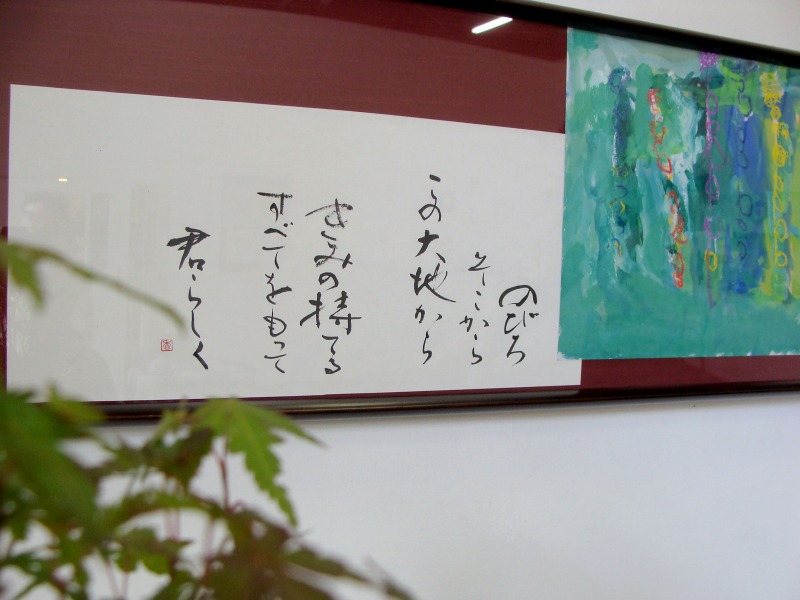 のびろ
そこから
この大地から
きみの持てる
すべてをもって
君らしく